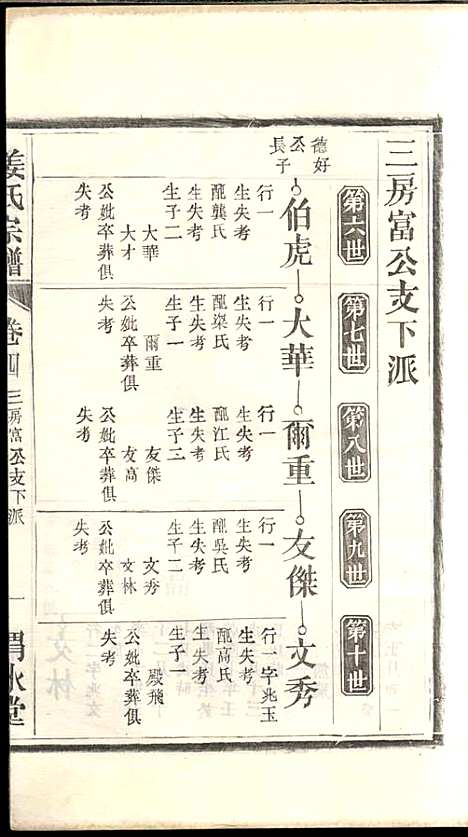 三房富公支下派
第六世
第七世
第八世
第九世
第十世
德好
公
長子
伯虎
大華
爾重
友傑
文秀
行一
生失考
配龔氏
生失考
生子二
大華
大才
公妣卒葬俱
失考
行一
生失考
配梁氏
生失考
生子一
爾重
公妣卒葬俱
失考
行一
生失考
配江氏
生失考
生子三
友傑
友高
公妣卒葬俱
失考
行一
生失考
配吳氏
生失考
生子二
文秀
文林
公妣卒葬俱
失考
行一字兆玉
生失考
配高氏
生失考
生子一
殿飛
公妣卒葬俱
失考
姜氏宗譜
卷四
三房富公支下派
一
渭水堂